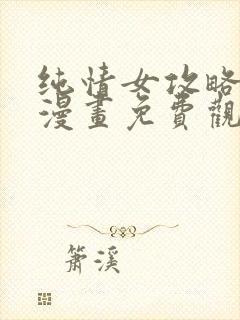 纯情女攻略
漫畫免費觀
箫溪